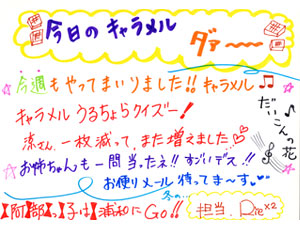 今日のキャラメル
ダァ〜〜〜
☆今週もやってまいりました!!キャラメル♫
キャラメルうるちょらクイズー!
凛さん、一枚減って、また増えました…♡♡
☆お姉ちゃんも一問当ったネ!!すごいデス!!
お便りメール待ってま〜す♥
だいこんの花
冬の…
【阿】【部】っ【子】は【浦和】にGo!!
担当、Rie×2